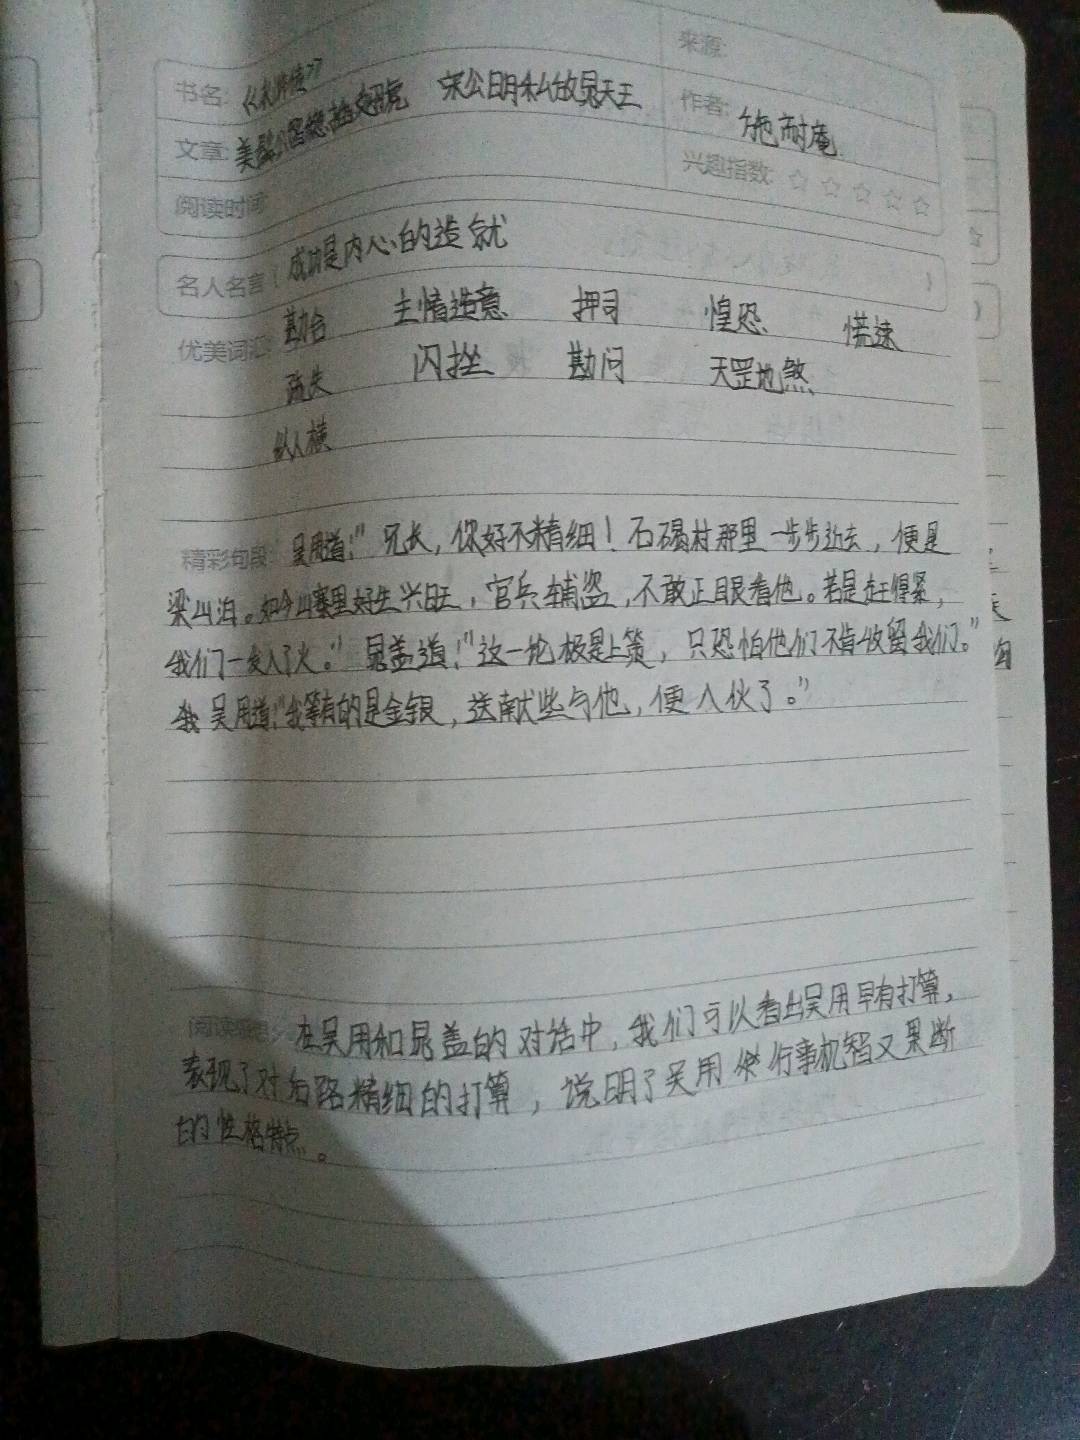 来源:
书名:《水浒传》
作者: 施耐庵
文章: 美髯公智稳插翅虎 宋公明私放晁天王
兴趣指数: ☆ ☆ ☆ ☆ ☆
阅读时间:
名人名言( 成功是内心的造就 )
优美词汇: 勘合 主情造意 押司 惶恐 慌速
疏失 闪挫 勘问 天罡地煞
纵横
精彩句段: 吴用道:"兄长,你好不精细!石碣村那里一步步近去,便是
梁山泊。如今山寨里好生兴旺,官兵辅盗,不敢正眼看他。若是赶得紧,
我们一发入了火。"晁盖道:"这一论极是上策,只恐怕他们不肯收留我们。"
我 吴用道:"我等有的是金银,送献些与他,便入伙了。"
阅读感想: 在吴用和晁盖的对话中,我们可以看出吴用早有打算,
表现了对后路精细的打算,说明了吴用 行事机智又果断
的性格特点。